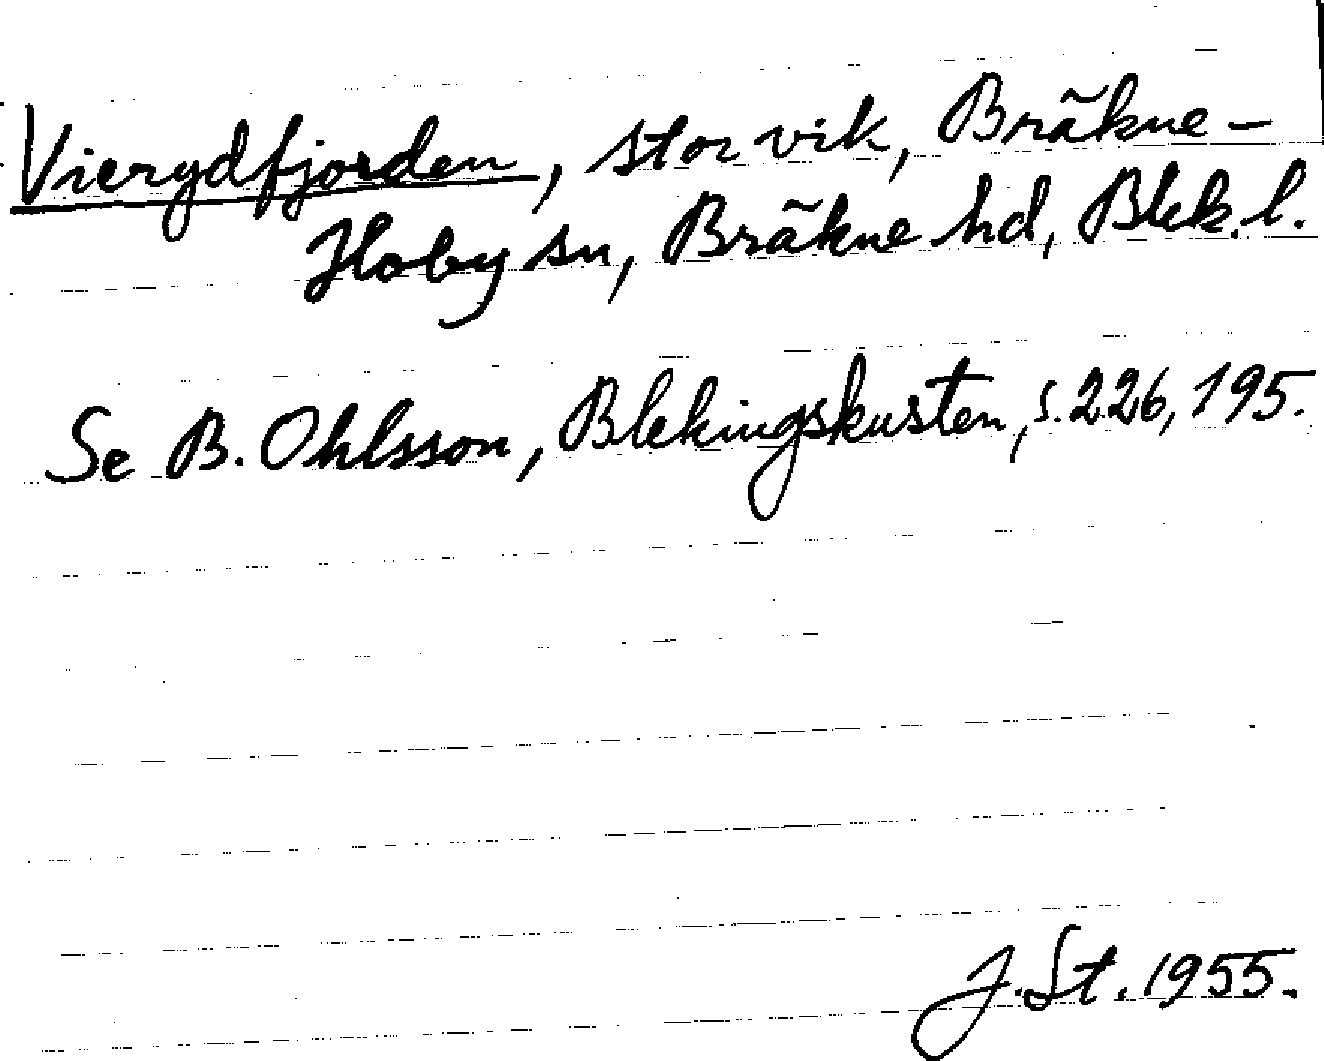 Vierydfjorden, stor vik, Bräkne-
Hoby sn, Bräkne hd, Blek. l.
Se B. Ohlsson, Blekingskusten, s. 226, 195.
J. St. 1955.